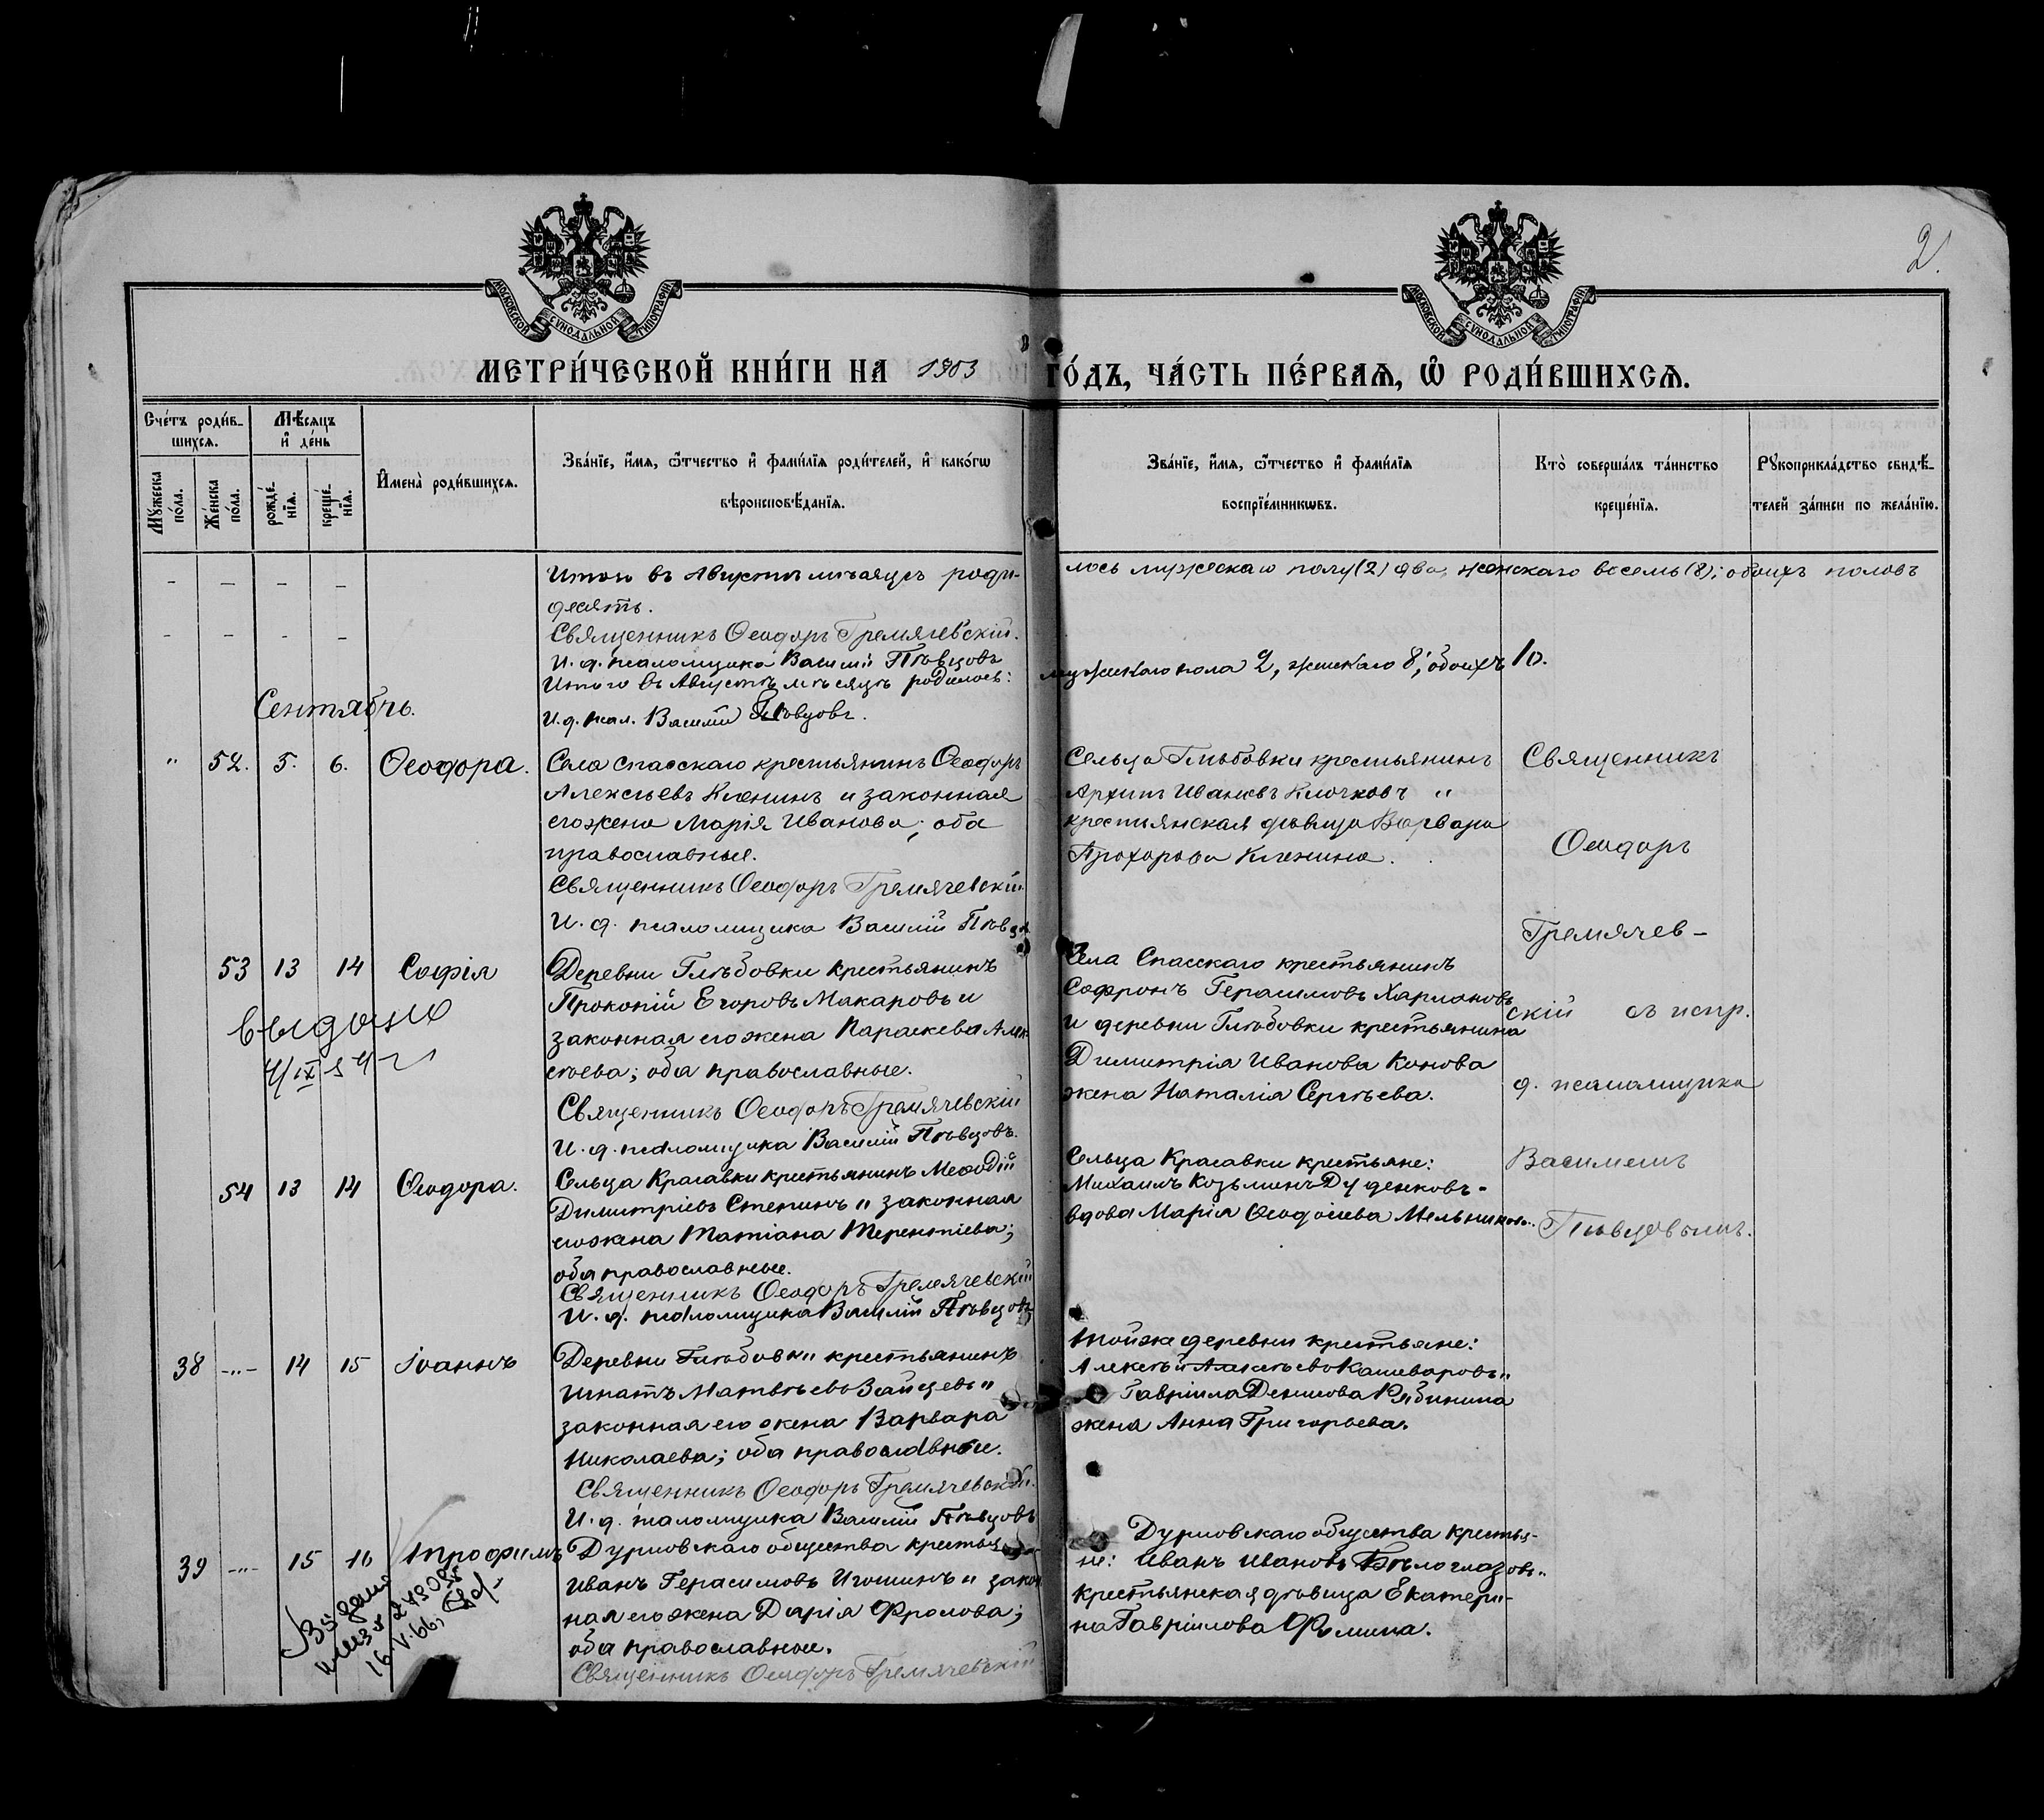 2.
МОСКОВСКОЙ СУНОДАЛЬНОЙ ТИПОГРАФІИ
МОСКОВСКОЙ СУНОДАЛЬНОЙ ТИПОГРАФІИ
МЕТРИ́ЧЕСКОЙ КНИ́ГИ НА 1903 ГО́ДЪ, ЧА́СТЬ ПЕ́РВАѦ, Ѽ РОДИ́ВШИХСѦ.
Сче́тъ роди́в-
шихсѧ.
Мѣ́сѧцъ
и҆ де́нь
Мꙋ́жеска
по́ла.
Же́нска
по́ла.
рожде́-
нїѧ.
креще́-
нїѧ.
И҆мена̀ роди́вшихсѧ.
Зва́нїе, и҆́мѧ, ѻ҆́тчество и҆ фами́лїѧ роди́телей, и҆ како́гѡ
вѣроисповѣ́данїѧ.
Зва́нїе, и҆́мѧ, ѻ҆́тчество и҆ фами́лїѧ
воспрїе́мникѡвъ.
Кто̀ соверша́лъ та́инство
креще́нїѧ.
Рꙋкоприкла́дство свидѣ́-
телей за́писи по жела́нїю.
Итого въ Августѣ мѣсяцѣ роди-
лось мужескаго полу (2) два, женскаго восемь (8); обоихъ половъ
десять.
Священникъ Ѳеодоръ Гремячевскій.
И. д. псаломщика Василій Пѣвцовъ
Итого въ Августѣ мѣсяцѣ родилось:
мужскаго пола 2, женскаго 8; обоихъ 10.
И. д. псал. Василій Пѣвцовъ.
Сентябрь.
" 52. 5. 6. Ѳеодора.
Села Спасскаго крестьянинъ Ѳеодоръ
Алексѣевъ Кленинъ и законная
его жена Марія Иванова; оба
православные.
Священникъ Ѳеодоръ Гремячевскій
И. д. псаломщика Василій Пѣвцовъ
Сельца Глѣбовки крестьянинъ
Архипъ Ивановъ Клочковъ и
крестьянская дѣвица Варвара
Прохорова Кленина.
Священникъ
Ѳеодоръ
Гремячев-
скій съ испр.
д. псаломщика
Василіемъ
Пѣвцовымъ.
53 13 14 Софія
выдано
Деревни Глѣбовки крестьянинъ
Прокопій Егоровъ Макаровъ и
законная его жена Параскева Алек-
сѣева; оба православные.
Священникъ Ѳеодоръ Гремячевскій
И. д. псаломщика Василій Пѣвцовъ.
Села Спасскаго крестьянинъ
Софронъ Герасимовъ Харламовъ
и деревни Глѣбовки крестьянина
Димитрія Иванова Конова
жена Наталія Сергѣева.
54 13 14 Ѳеодора.
Сельца Красавки крестьянинъ Меѳодій
Димитріевъ Степинъ и законная
его жена Татіана Терентіева;
оба православные.
Священникъ Ѳеодоръ Гремячевскій
И. д. псаломщика Василій Пѣвцовъ
Сельца Красавки крестьяне:
Михаилъ Козьминъ Дуденковъ
вдова Марія Ѳеодосіева Мельникова.
38 -"- 14 15 Іоаннъ
Деревни Глѣбовки крестьянинъ
Игнатъ Матвѣевъ Зайцевъ и
законная его жена Варвара
Николаева; оба православные.
Священникъ Ѳеодоръ Гремячевскій.
И. д. псаломщика Василій Пѣвцовъ
Той же деревни крестьяне:
Алексѣй Алексѣевъ Кашеваровъ и
Гавріила Денисова Рябинина
жена Анна Григорьева.
39 -"- 15 16 Трофимъ
Дурновскаго общества крестья
Иванъ Герасимовъ Игошинъ и закон
ная его жена Дарія Фролова;
оба православные.
Священникъ Ѳеодоръ Гремячевскій
Дурновскаго общества крестья-
не: Иванъ Ивановъ Бѣлоглазовъ и
крестьянская дѣвица Екатери-
на Гавріилова Фомина.
16.V.66